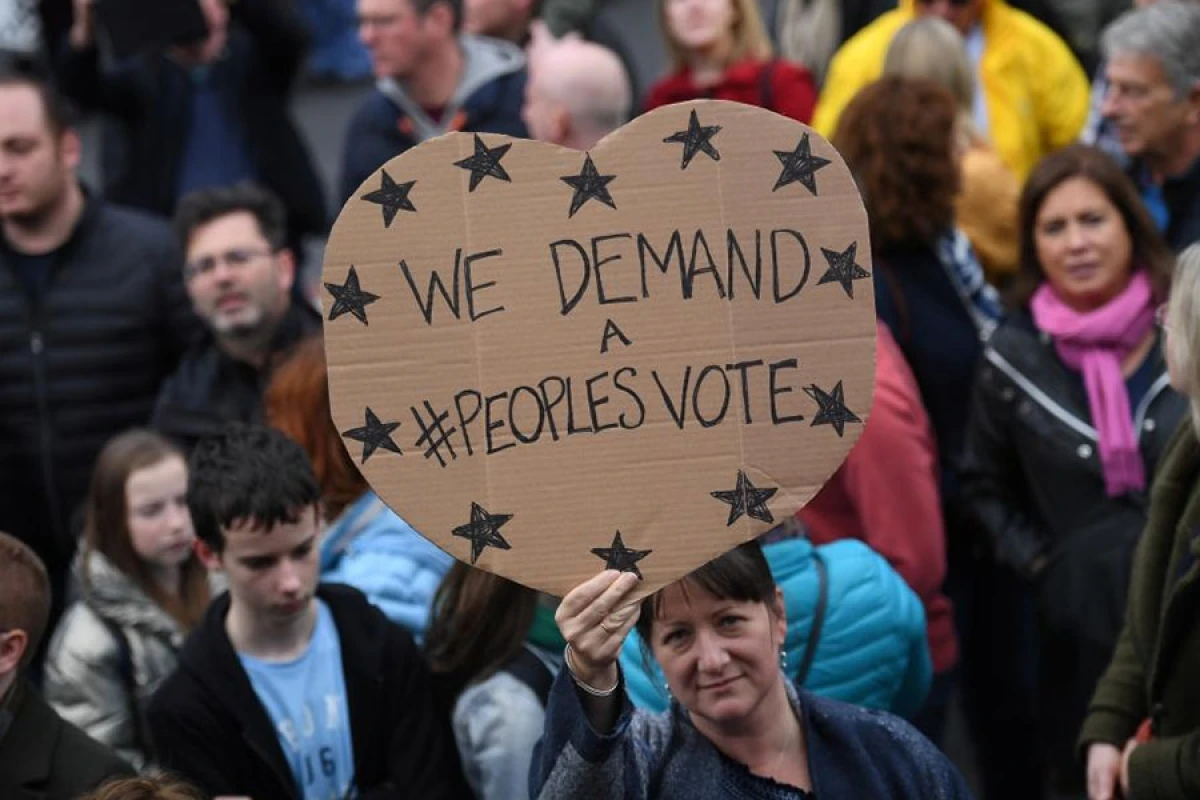 WE DEMAND
A
#PEOPLES VOTE
16